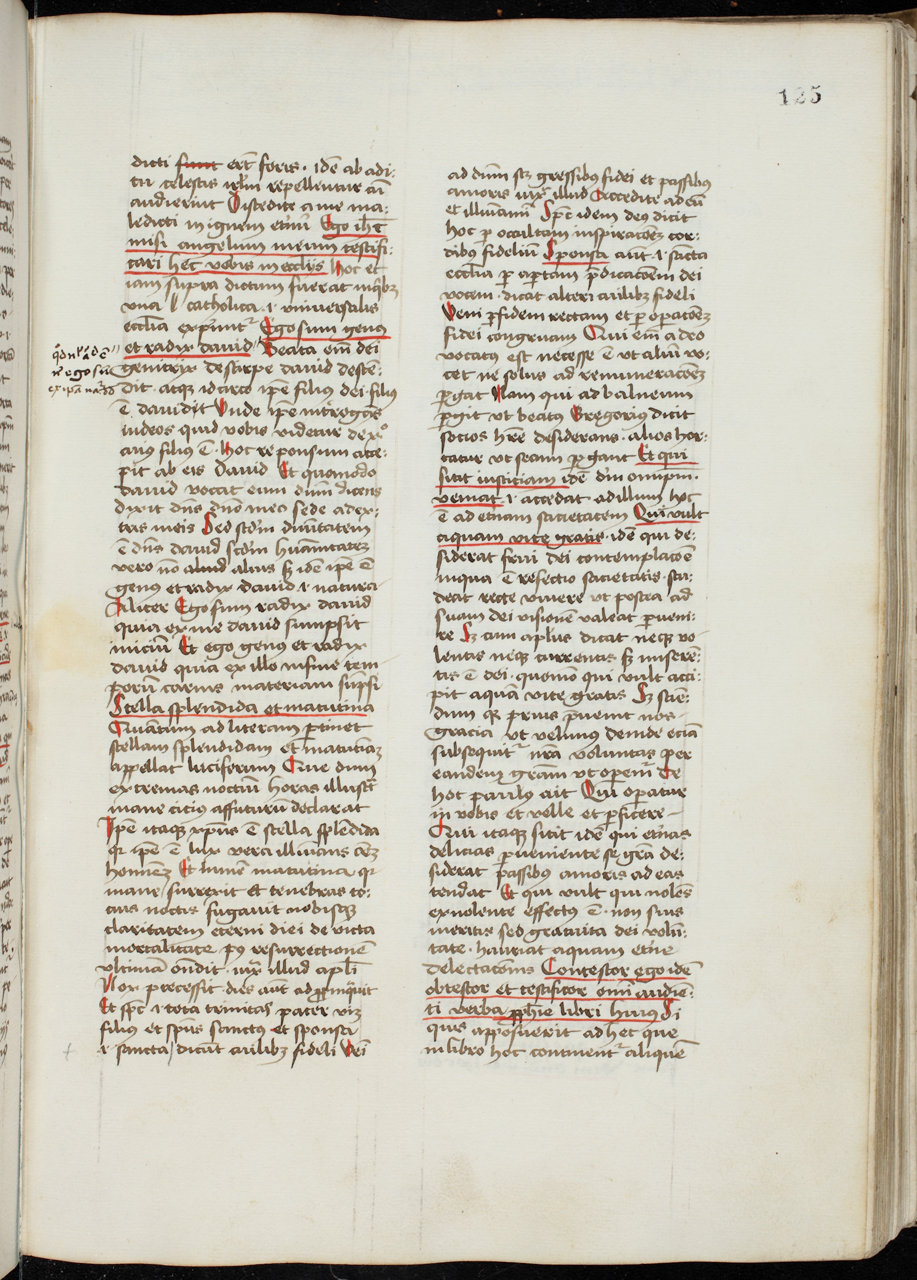 125
dicti sunt erūt foris · idē ab adi-
tu celestis irl̄m repellentur cū
audierint Discedite a me ma-
ledicti in ignem etnū Ego ih̄c
misi angelum meum testifi-
tari hec vobis in ecclijs hoc et
iam supra dictum fuerat in qibȝ
vna catholica ⁊ vniuersalis
ecclīa exprimit᷑ Ego sum genus
et radix dauid Beata em̄ dei
genitrix de stirpe dauid desčē-
dit atqȝ idcirco ip̄e filius dei · filius
ē dauid Vnde ip̄e int̄rogās
iudeos quid vobis videtur de xp̄o
cuius filius ē · hoc respōsum acce-
pit ab eis dauid Et quomodo
dauid vocat eum dn̄m dicens
dixit dn̄s dn̄o meo sede a dex-
tris meis Sed scd̄m diuītatem
ē dn̄s dauid scd̄m hūanitateȝ
vero nō aliud alius sȝ idē ip̄e ē
genus et radix dauid ⁊ natura
Aliter Ego sum radix dauid
quia ex me dauid sumpsit
iniciū Et ego genus et radix
dauid quia ex illo in fine tem-
porū carnis materiam sūpsi
Stella splendida et matutina
Quantum ad literam p̄tinet
stellam splendidam et matutinā
appellat luciferum Que dum
extremas noctiū horas illust̄t
mane cicius affuturū declarat
Ip̄e itaqȝ xp̄us ē stella splēdida
qr ip̄e ē lux vera illuminās om̄ē
hominē Et lumē matutina qr
mane surrexit et tenebras to-
cius noctis fugauit nobisqȝ
claritatem eterni diei de victa
mortalitate p⁹ resurrectionē
vltimā on̄dit · iux̄ illud apl̄i
Nox precessit dies aūt adp̄pinquit
Et sp̄c ⁊ tota trinitas pater viȝ
filius et sp̄us sanctus et sponsa
⁊ sancta dicūt cuilibȝ fideli Vēi
ad dn̄m scȝ gressibus fidei et passibus
amoris iux̄ illud Accedite ad eū
et illumīamī Sp̄c idem deus dicit
hoc p occultam inspiracōeȝ cor-
dibus fideliū Sponsa aūt ⁊ sancta
ecclīa p apertam p̄dicacōem dei
vocem · dicat alteri cuilibȝ fideli
Veni p fidem rectam et p opacōeȝ
fidei congruam Qui em̄ a deo
vocatus est necesse ē vt aliū vo-
cet ne solus ad remuneracōeȝ
pgat Nam qui ad balneum
p̄git vt beatus Gregorius dicit
socios hr̄e desiderans · alios hor-
tatur vt secum pgant Et qui
sitit iusticiam idē dn̄i omnipn̄.
veniat ⁊ accedat ad illum hoc
ē ad etnam sacietatem Qui vult
aquam vite gratis · idē qui de-
siderat frui dei contemplacōē
in qua ē refectio sacietatis · stu-
deat recte viuere vt postea ad
suam dei visionē valeat p̄ueni-
re Sȝ cum aplus dicat neqȝ vo-
lentis neqȝ currentis sȝ miserē-
tis ē dei · quomō qui vult acci-
pit aquā vite gratis Sȝ sciē-
dum qr prius p̄uenit nos
gracia vt velimus deinde eciā
subsequit᷑ nr̄a voluntas per
eandem grām vt operem᷑ De
hoc paulus ait Qui operatur
in vobis et velle et p̄ficere
Qui itaqȝ sitit idē qui etnas
delicias p̄ueniente se grā de-
siderat passibus amoris ad eas
tendat Et qui vult qui nolēs
ex nolente effectus ē · non suis
meritis sed gratuita dei volū-
tate · hauriat aquam etn̄e
delectacōnis Contestor ego idē
obtestor et testificor om̄i audiē-
ti verba pphīe libri huius Si
quis apposuerit ad hec que
in libro hoc continent᷑ aliquē